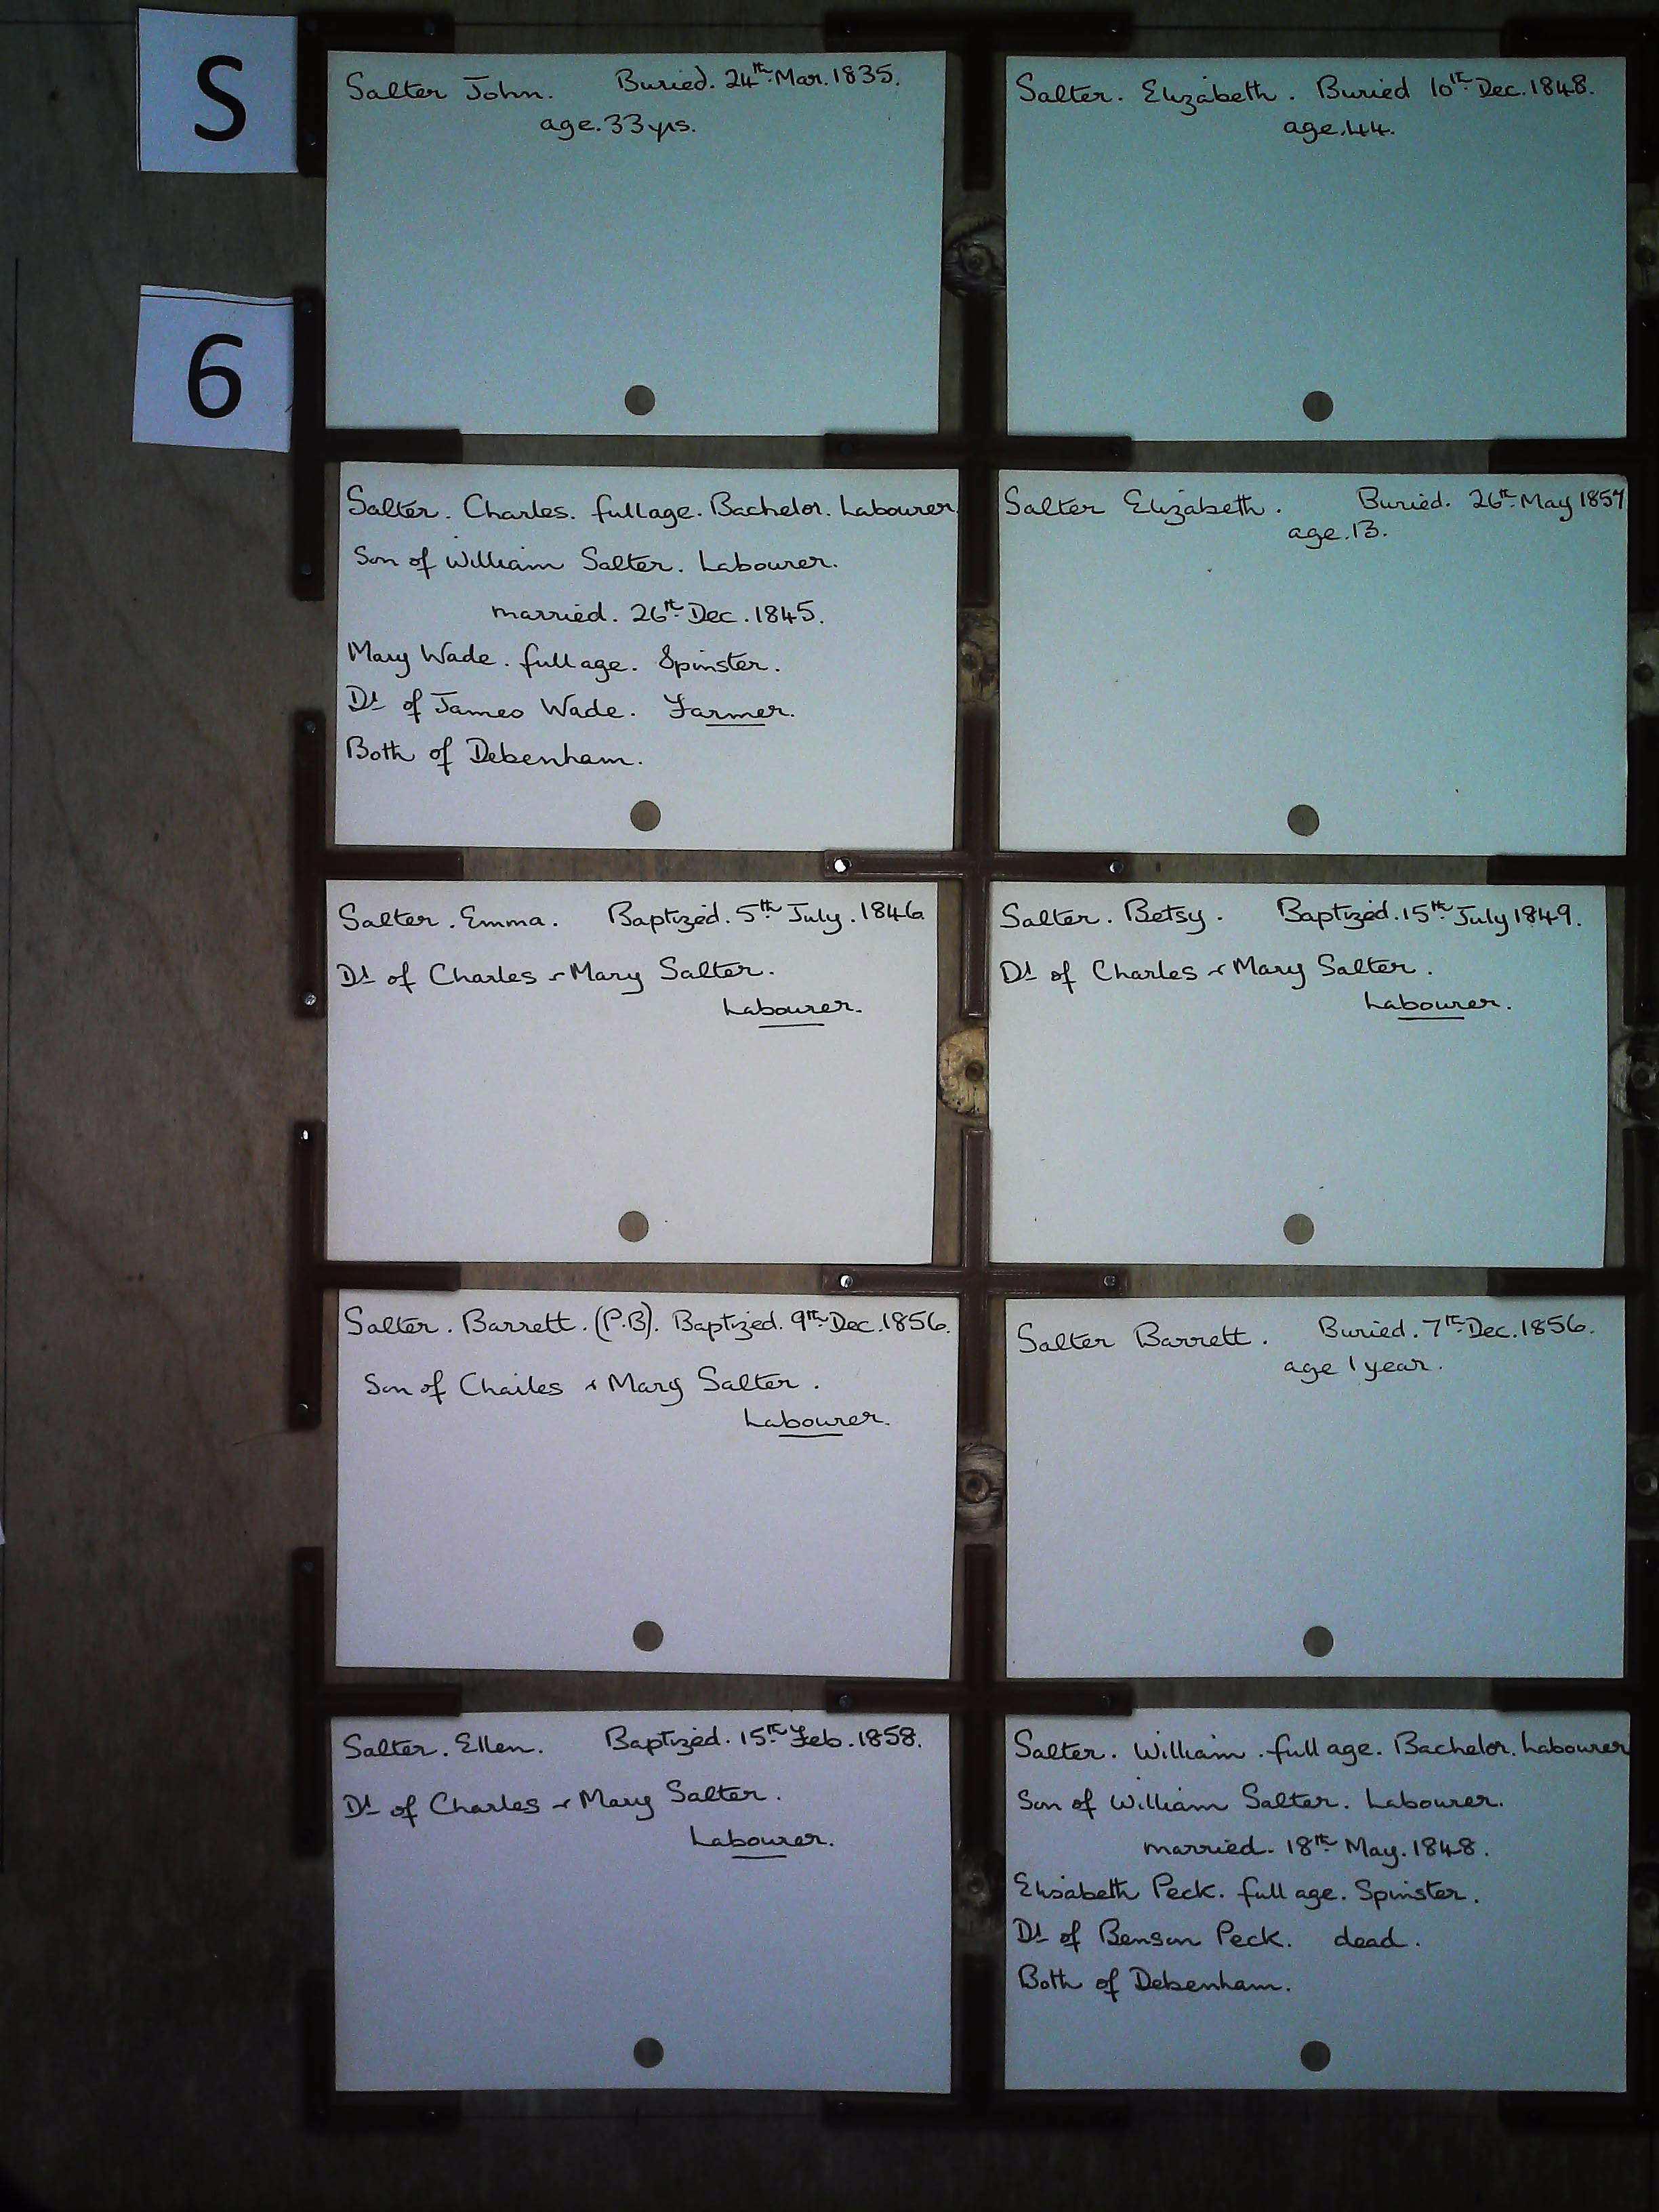 S
6
Salter John. Buried. 24th Mar. 1835.
age. 33 yrs.
Salter. Elizabeth. Buried 10th Dec. 1848.
age. 44.
Salter. Charles. full age. Bachelor. Labourer.
Son of William Salter. Labourer.
married. 26th Dec. 1845.
Mary Wade. full age. Spinster.
Dt of James Wade. Farmer.
Both of Debenham.
Salter Elizabeth. Buried. 26th May 1857
age. 13.
Salter. Emma. Baptized. 5th July. 1846
Dt of Charles & Mary Salter.
Labourer.
Salter. Betsy. Baptized. 15th July 1849.
Dt of Charles & Mary Salter.
Labourer.
Salter. Barrett. (P.B). Baptized. 9th Dec. 1856.
Son of Charles & Mary Salter.
Labourer.
Salter Barrett. Buried. 7th Dec. 1856.
age 1 year.
Salter. Ellen. Baptized. 15th Feb. 1858.
Dt of Charles & Mary Salter.
Labourer.
Salter. William. full age. Bachelor. Labourer
Son of William Salter. Labourer.
married. 18th May. 1848.
Elisabeth Peck. full age. Spinster.
Dt of Benson Peck. dead.
Both of Debenham.